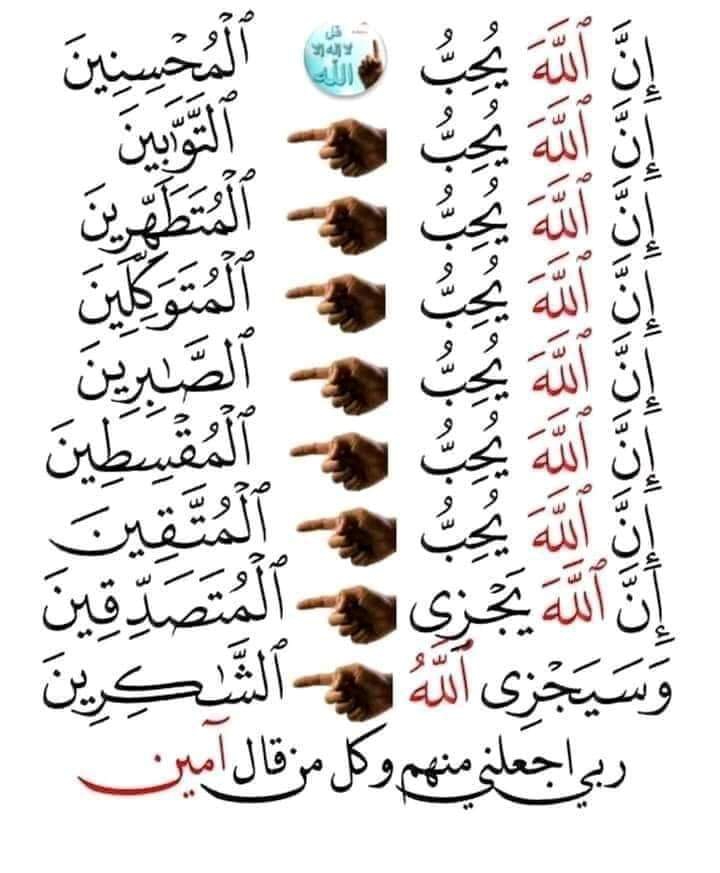 إِنَّ ٱللَّهَ يُحِبُّ ٱلْمُحْسِنِينَ
قل لا إله إلا الله
إِنَّ ٱللَّهَ يُحِبُّ ٱلتَّوَّٰبِينَ
إِنَّ ٱللَّهَ يُحِبُّ ٱلْمُتَطَهِّرِينَ
إِنَّ ٱللَّهَ يُحِبُّ ٱلْمُتَوَكِّلِينَ
إِنَّ ٱللَّهَ يُحِبُّ ٱلصَّٰبِرِينَ
إِنَّ ٱللَّهَ يُحِبُّ ٱلْمُقْسِطِينَ
إِنَّ ٱللَّهَ يُحِبُّ ٱلْمُتَّقِينَ
إِنَّ ٱللَّهَ يَجْزِى ٱلْمُتَصَدِّقِينَ
وَسَيَجْزِى ٱللَّهُ ٱلشَّٰكِرِينَ
ربي اجعلني منهم وكل من قال آمين